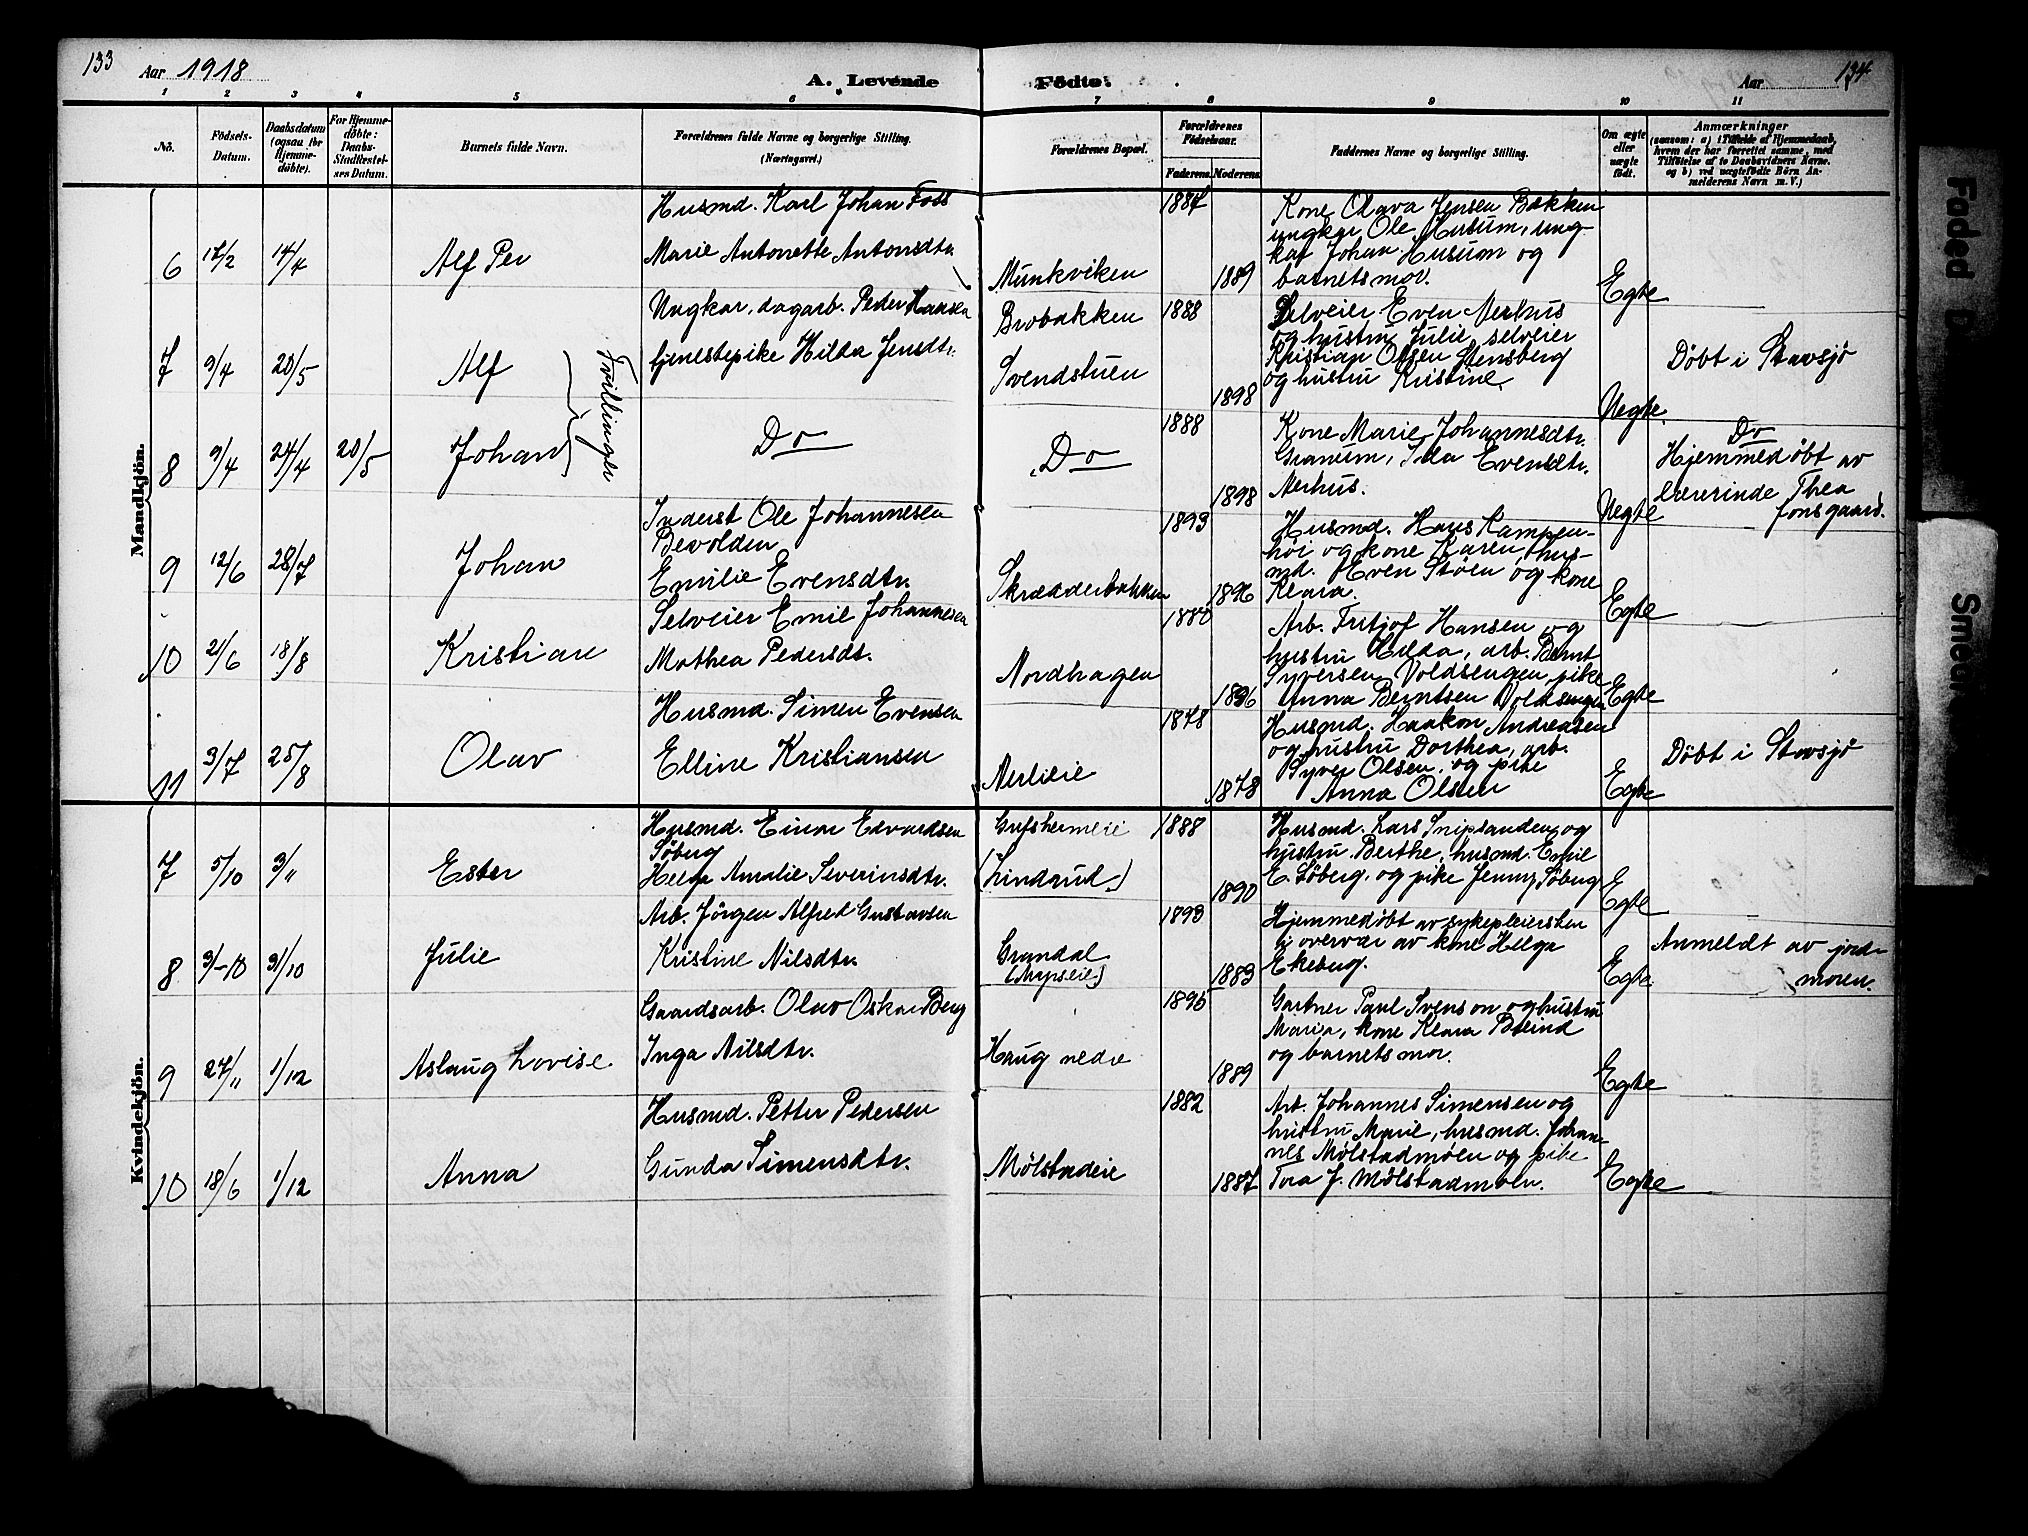 133
Aar 1918
A. Levende
Födte.
Aar
134
1 2 3 4 5 6 7 8 9 10 11
No.
Födsels-
Datum.
Daabsdatum
(ogsaa for
Hjemme-
døbte).
For Hjemme-
døbte:
Daabs-
Stadfæstel-
ses Datum.
Barnets fulde Navn.
Forældrenes fulde Navne og borgerlige Stilling.
(Næringsvei.)
Forældrenes Bopæl.
Forældrenes
Födselsaar.
Faderens. Moderens.
Faddernes Navne og borgerlige Stilling.
Om ægte
eller
uægte
født.
Anmærkninger
(saasom: a) i Tilfælde af Hjemmedaab,
hvem der har forrettet samme, med
Tilföielse af to Daabsvidners Navne,
og b) ved uægtefödte Börn An-
melderens Navn m. V.)
Mandkjön.
6 14/4 Alf Per
Husmd. Karl Johan Foss
Marie Antonette Antonsdtr.
Munkviken
1889
Kone Olava Jensen Bækken
ungkar Ole Husum, ung-
kar Johan Husum og
barnets mor.
Egte
7 9/4 20/5 Alf
Tvillinger
Ungkar, dagarb. Peder Hansen
tjenestepike Hilda Jensdtr.
Brobakken
Svendstuen
1888
1898
Selveier Even Nerhus
og hustru Julie, selveier
Kristian Olsen Stensberg
og hustru Kristine.
Uegte.
Døbt i Stavsjø
8 9/4 24/4 20/5 Johan
Do
Do
1888
1898
Kone Marie Johannesdtr.
Granum, Ida Evensdtr.
Nerhus.
Uegte
Do
Hjemmedøbt av
lærerinde Thea
fonsgaard.
9 12/6 28/7 Johan
Inderst Ole Johannesen
Bevolden
Emilie Evensdtr.
Skrædderbakken
1893
1896
Husmd. Hans Kampen-
høi og kone Karen, hus-
md. Even Støen og kone
Klara.
Egte
10 21/6 18/8 Kristian
Selveier Emil Johannesen
Mathea Pedersdt.
Nordhagen
1880
1896
Arb. Fritjof Hansen og
hustru Hilda, arb. Bernt
Syversen Voldsengen, pike
Anna Berntsen Voldsengen
Egte
11 3/7 25/8 Olav
Husmd. Simen Evensen
Elline Kristiansen
Nerlieie
1878
1878
Husmd. Haakon Andreasen
og hustru Dorthea, arb.
Syver Olsen, og pike
Anna Olsen
Egte
Døbt i Stavsjø
Kvindekjön.
7 5/10 3/11 Ester
Husmd. Einar Edvardsen
Søberg
Helga Amalie Severinsdtr.
(Lindrud.)
1888
1890
Husmd. Lars Snipsanden og
hustru Berthe, husmd. Emil
E. Søberg, og pike Jenny Søberg
Egte
8 3/10 31/10 Julie
Arb. Jørgen Alfred Gustavsen
Kristine Nilsdtr.
Grandal
1893
1883
Hjemmedøbt av sykepleiersken
i overvær av kone Helga
Ekeberg.
Egte
Anmeldt av jord-
moren.
9 27/11 1/12 Aslaug Lovise
Gaardsarb. Olav Oskar Berg
Inga Nilsdtr.
Haug nedre
1895
1889
Gartner Paul Svenson og hustru
Maria, kone Klara Strind
og barnets mor.
Egte
10 18/6 1/12 Anna
Husmd. Petter Pedersen
Gunda Simensdtr.
Mølstadeie
1882
1887
Arb. Johannes Simensen og
hustru Marie, husmd. Johan-
nes Mølstadmoen og pike
Tora J. Mølstadmoen.
Egte
Faded D
Smear